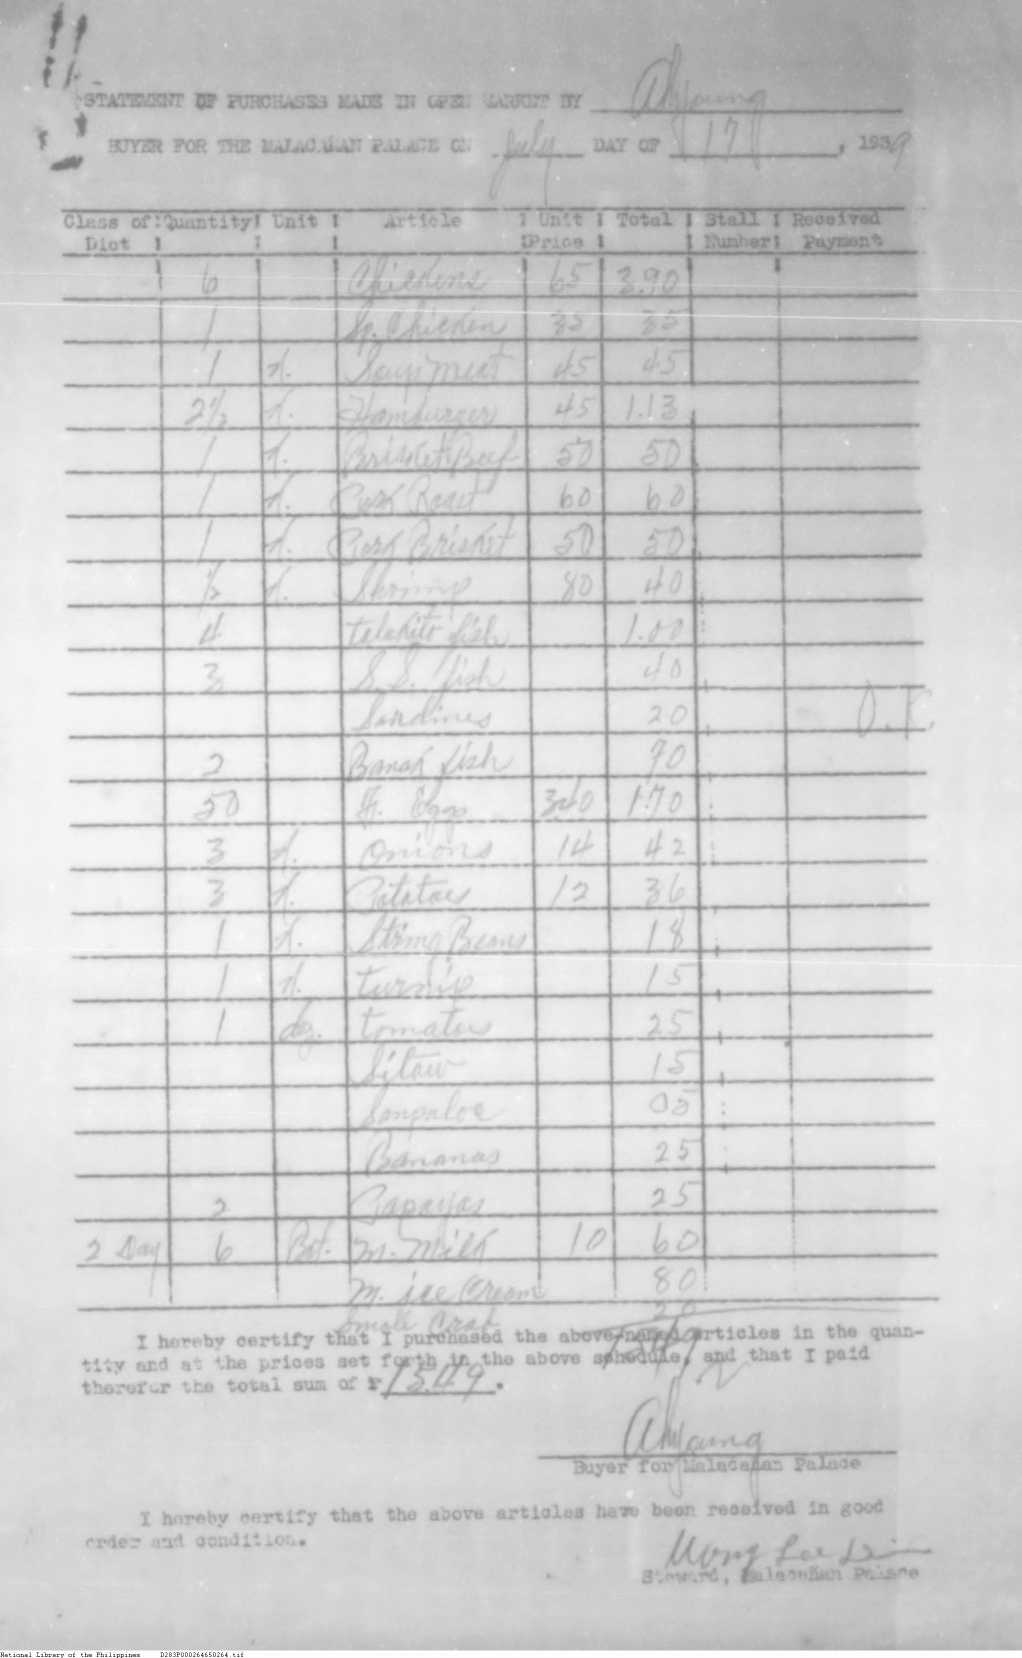 STATEMENT OF PURCHASES MADE IN OPEN MARKET BY Ah Young
BUYER FOR THE MALACAÑAN PALACE ON July DAY OF 17, 1939
Class of Diet Quantity Unit Article Unit Price Total Stall Number Received Payment
6 Chickens 65 3.90
1 Sp. Chicken 35 35
1 k. Soup meat 45 45
2½ k. Hamburger 45 1.13
1 k. Brisket Beef 50 50
1 k. Pork Roast 60 60
1 k. Pork Brisket 50 50
½ k. Shrimp 80 40
4 talakito fish 1.00
3 S. S. fish 40
Sardines 20 O.K.
2 Banak fish 70
50 F. Eggs 340 1.70
3 k. Onions 14 42
3 k. Potatoes 12 36
1 k. String Beans 18
1 k. turnip 15
1 dz. tomatoes 25
Sitaw 15
Sampaloc 05
Bananas 25
2 Papayas 25
2 Day 6 Bot. M. Milk 10 60
M. ice Cream 80
Smole Crab 20
I hereby certify that I purchased the above-named articles in the quan-
tity and at the prices set forth in the above schedule, and that I paid
therefor the total sum of ₱ 15.49.
Ah Young
Buyer for Malacañan Palace
I hereby certify that the above articles have been received in good
order and condition.
Wong
Steward, Malacañan Palace
National Library of the Philippines D283P000264650264.tif